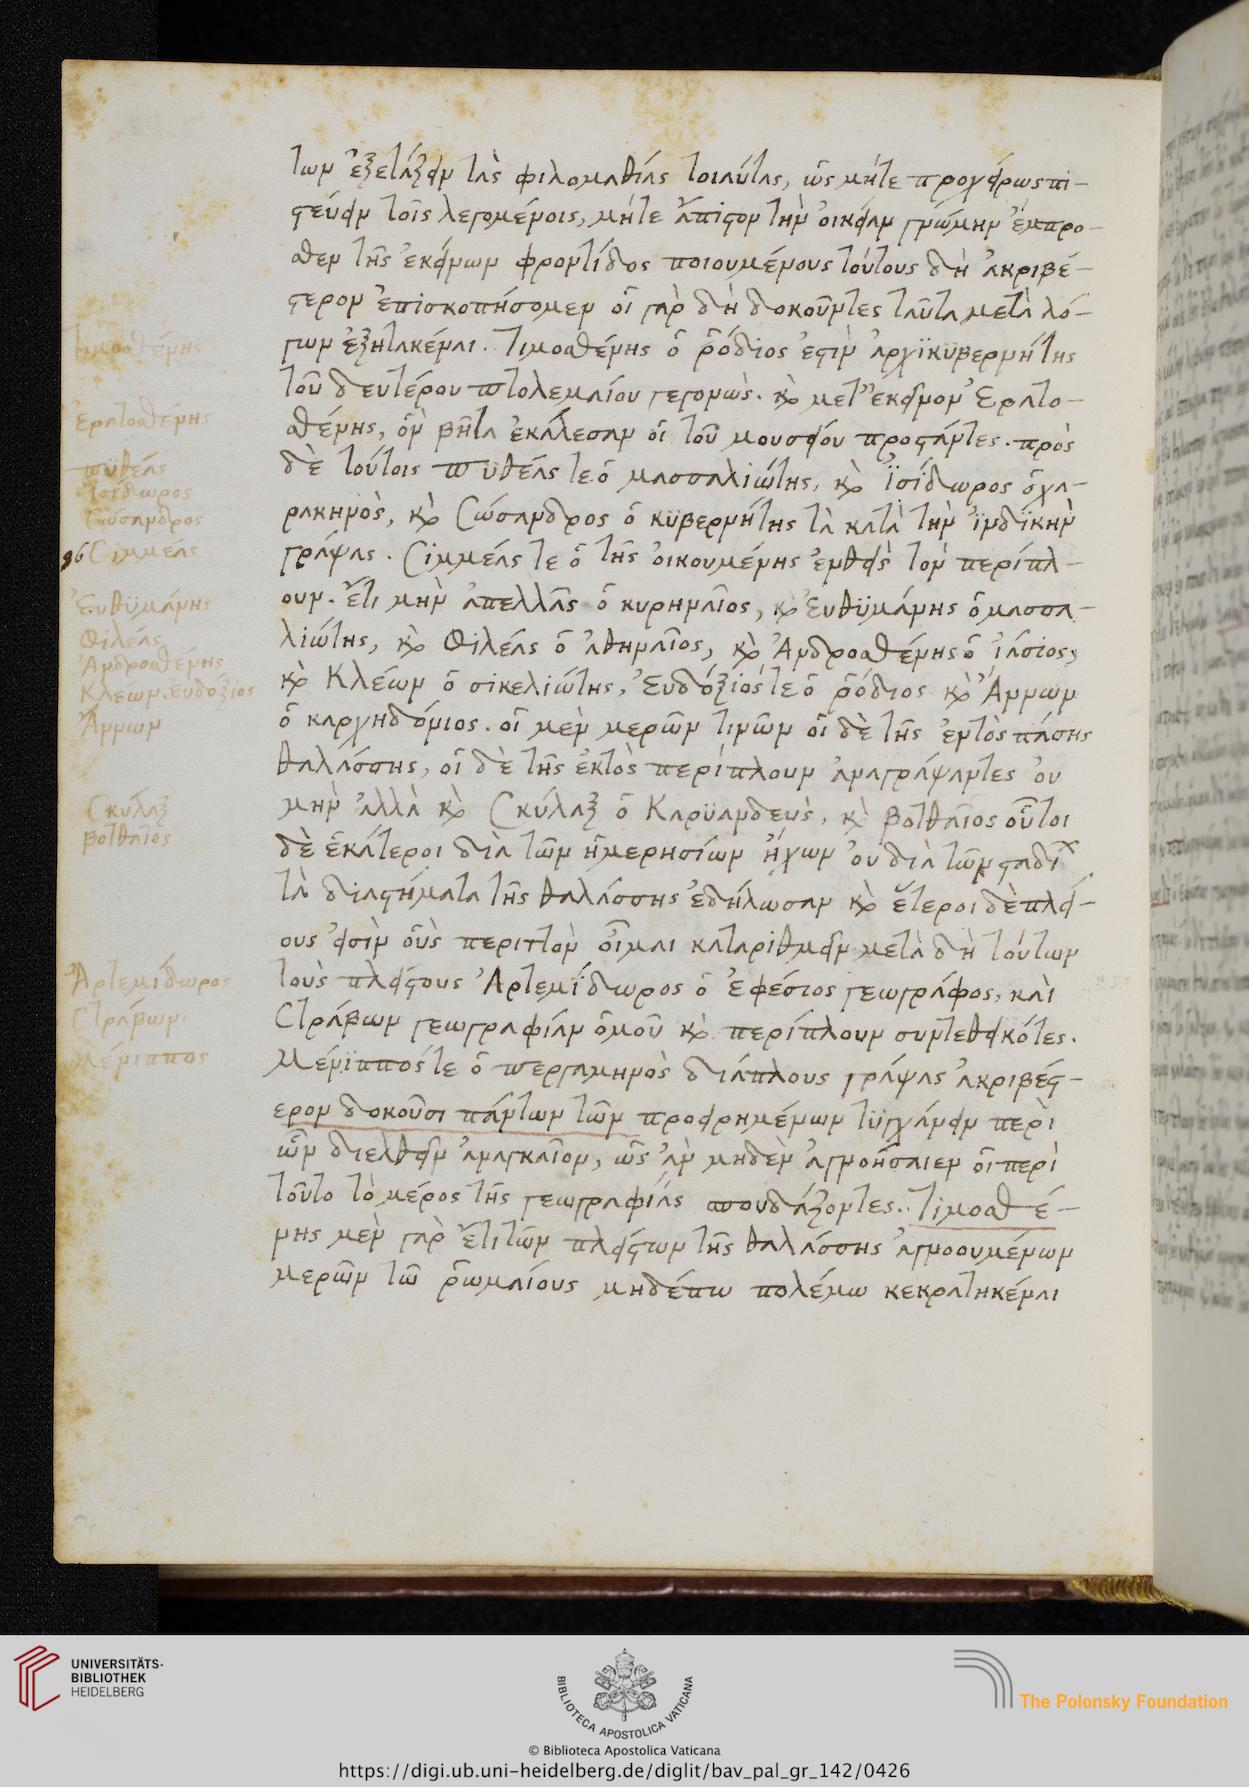 των ἐξετάζειν τὰς φιλομαθίας τοιαύτας, ὡς μήτε προχείρως πι-
στεύειν τοῖς λεγομένοις, μήτε ἄπιστον τὴν οἰκείαν γνώμην ἔμπρο-
σθεν τῆς ἐκείνων φροντίδος ποιουμένους τούτους δὴ ἀκριβέ-
στερον ἐπισκοπήσομεν οἳ γὰρ δὴ δοκοῦντες ταῦτα μετὰ λό-
γων ἐξητακέναι. Τιμοσθένης ὁ ῥόδιος ἐστὶν ἀρχϊκυβερνήτης
τοῦ δευτέρου πτολεμαίου γεγονὼς. καὶ μετ' ἐκεῖνον Ἐρατο-
σθένης, ὃν βῆτα ἐκάλεσαν οἱ τοῦ μουσείου προστάντες. πρὸς
δὲ τούτοις πυθέας τε ὁ μασσαλιώτης, καὶ Ἰσίδωρος ὁ χα-
ρακηνὸς, καὶ Σώσανδρος ὁ κυβερνήτης τὰ κατὰ τὴν ἰνδϊκὴν
γράψας. Σιμμέας τε ὁ τῆς οἰκουμένης ἐνθεὶς τὸν περίπλ-
ουν. ἔτι μὴν ἀπελλᾶς ὁ κυρηναῖος, καὶ Εὐθϋμένης ὁ μασσα-
λιώτης, καὶ Φιλέας ὁ ἀθηναῖος, καὶ Ἀνδροσθένης ὁ ἰάσιος,
καὶ Κλέων ὁ σικελιώτης, Εὐδόξιός τε ὁ ῥόδιος καὶ Ἄννων
ὁ καρχηδόνιος. οἳ μὲν μερῶν τινῶν οἳ δὲ τῆς ἐντὸς πάσης
θαλάσσης, οἳ δὲ τῆς ἐκτὸς περίπλουν ἀναγράψαντες οὐ
μὴν ἀλλὰ καὶ Σκύλαξ ὁ Καρϋανδεὺς, καὶ βοτθαῖος οὗτοι
δὲ ἑκάτεροι διὰ τῶν ἡμερησίων ἤχων οὐ διὰ τῶν σταδί
τὰ διαστήματα τῆς θαλάσσης ἐδήλωσαν καὶ ἕτεροι δὲ πλεί-
ους εἰσὶν οὓς περιττὸν οἶμαι καταριθμεῖν μετὰ δὴ τούτων
τοὺς πλείστους Ἀρτεμίδωρος ὁ Ἐφέσιος γεωγράφος, καὶ
Στράβων γεωγραφίαν ὁμοῦ καὶ περίπλουν συντεθεικότες.
Μένϊππός τε ὁ περγαμηνὸς διάπλους γράψας ἀκριβέστ-
ερον δοκοῦσι πάντων τῶν προειρημένων τϋγχάνειν περὶ
ὧν διελθεῖν ἀναγκαῖον, ὡς ἂν μηδὲν ἀγνοήσαιεν οἳ περὶ
τοῦτο τὸ μέρος τῆς γεωγραφίας σπουδάζοντες. Τιμοσθέ-
νης μὲν γὰρ ἔτι τῶν πλείστων τῆς θαλάσσης ἀγνοουμένων
μερῶν τῶ ῥωμαίους μηδέπω πολέμω κεκρατηκέναι
Τιμοσθένης
Ἐρατοσθένης
πϋθέας
Ἰσίδωρος
Σώσανδρος
96 Σιμμέας
Εὐθϋμένης
Φιλέας
Ἀνδροσθένης
Κλεων. Εὐδόξιος
Ἄννων
Σκύλαξ
βοτθαῖος
Ἀρτεμίδωρος
Στράβων.
Μένιππος
UNIVERSITÄTS-
BIBLIOTHEK
HEIDELBERG
BIBLIOTECA APOSTOLICA VATICANA
The Polonsky Foundation
© Biblioteca Apostolica Vaticana
https://digi.ub.uni-heidelberg.de/diglit/bav_pal_gr_142/0426